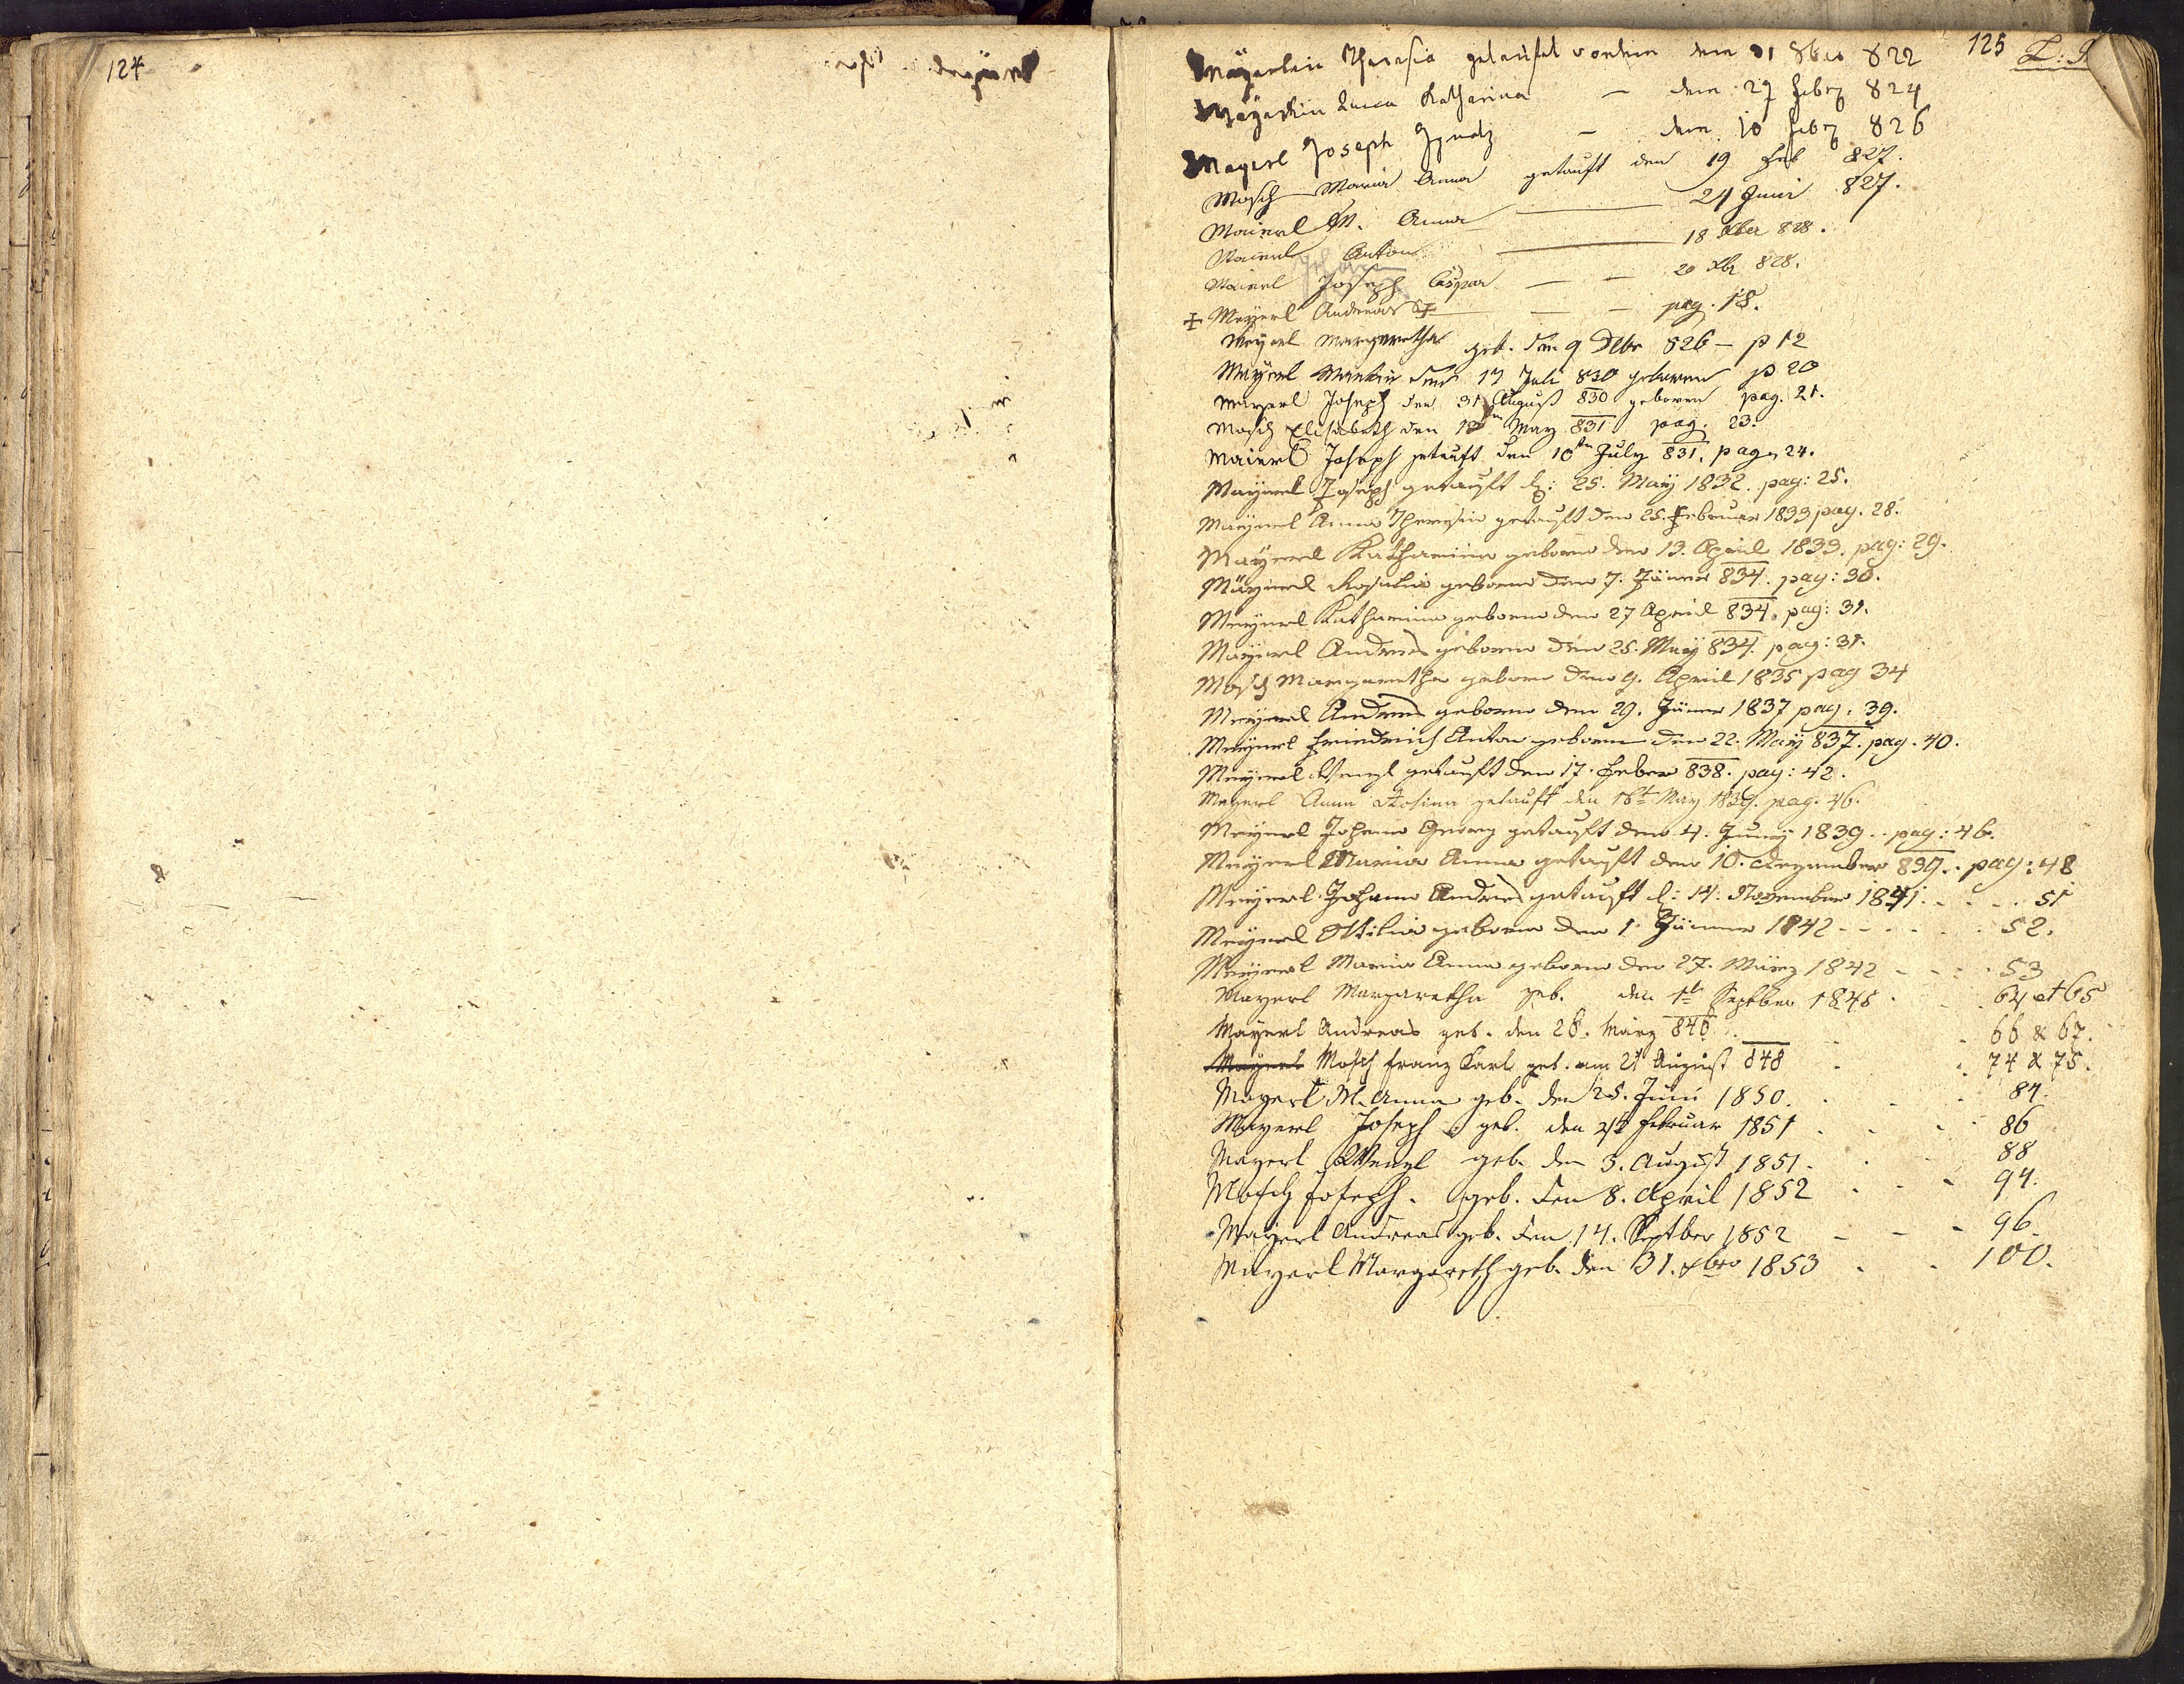 124
125
Mayerlin Theresia getaufet worden den 31 8ber 822
Mayerlin Anna Katharina — den 29 Febr 824
Mayerl Joseph Ignatz — den 10 Febr 826
Mosch Maria Anna getauft den 19 Feb 827.
Maierl M. Anna — 24 Juni 827.
Maierl Anton — 18 Xber 828.
Maierl Joseph Caspar — — 20 Xbr 828.
Meyerl Andreas — — pag. 18.
Meyerl Margaretha geb. den 9 Dbr 826 — p 12
Mayerl den 17 Juli 830 geboren p 20
Mayerl Joseph den 31 August 830 geboren pag. 21.
Mosch Elisabeth den 18ten May 831 pag. 23.
Maierl Joseph getauft den 10ten July 831. pag. 24.
Mayerl Joseph getauft d: 25. May 1832. pag: 25.
Mayerl Anna Theresia getauft den 25. Februar 1833 pag. 28.
Mayerl Katharina geboren den 13. April 1833. pag: 29.
Mayerl Rosalia geboren den 7. Jäner 834. pag: 30.
Meyerl Katharina geboren den 27 April 834. pag: 31.
Mayerl Andreas geboren den 25. May 834. pag: 31.
Mosch Margaretha geboren den 9. April 1835 pag 34
Meyerl Andreas geboren den 29. Jäner 1837 pag. 39.
Meyerl Friedrich Anton geboren den 22. May 837. pag. 40.
Meyerl Wenzl getauft den 17. Feber 838. pag: 42.
Meyerl Anna Rosina getauft den 16t May 1839. pag. 46.
Meyerl Johann Georg getauft den 4. Juny 1839.. pag: 46.
Meyerl Maria Anna getauft den 10. Dezember 839.. pag: 48
Meyerl Johann Andreas getauft d: 14. November 1841. . . . . 51
Meyerl Ottilia geboren den 1. Jänner 1842 - - - - - - 52.
Meyerl Maria Anna geboren den 27. März 1842 - - - - 53
Mayerl Margaretha geb. den 1t Septber 1845. 64 et 65
Mayerl Andreas geb. den 28. März 846. . 66 & 67.
Mayerl Mosch Franz Karl geb. am 21 August 848 . . 74 & 75.
Mayerl M. Anna geb. den 25. Juni 1850. . . . 84.
Mayerl Joseph geb. den Februar 1851 . . . 86
Mayerl Wenzl geb. den 3. August 1851. . . 88
Mosch Joseph. geb. den 8. April 1852 . . - 94.
Mayerl Andreas geb. den 14. Septber 1852 - - - 96.
Mayerl Margareth geb. den 31. Xbro 1853 . . 100.